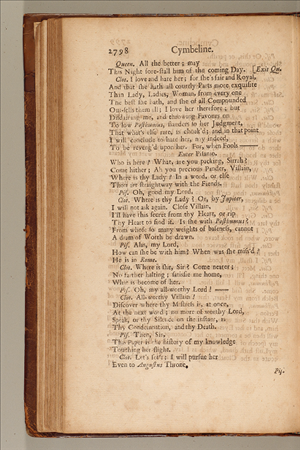 2798 Cymbeline.
Queen. All the better; may
This Night fore-stall him of the coming Day. [Exit Qu.
Clo. I love and hate her; for she's fair and Royal,
And that she hath all courtly Parts more exquisite
Than Lady, Ladies, Woman, from every one
The best she hath, and she of all Compounded
Out-sells them all; I love her therefore; but
Disdaining me, and throwing Favours on
The low Posthumus, slanders so her Judgment,
That what's else rare, is choak'd; and in that point
I will conclude to hate her, nay indeed,
To be reveng'd upon her. For, when Fools ——
Enter Pisanio.
Who is here? What, are you packing, Sirrah?
Come hither; Ah you precious Pander, Villain,
Where is thy Lady? In a word, or else
Thou art straightway with the Fiends.
Pis. Oh, good my Lord.
Clo. Where is thy Lady? Or, by Jupiter,
I will not ask again. Close Villain,
I'll have this secret from thy Heart, or rip
Thy Heart to find it. Is she with Posthumus?
From whose so many weights of baseness, cannot
A dram of Worth be drawn.
Pis. Alas, my Lord,
How can she be with him? When was she miss'd?
He is in Rome.
Clo. Where is she, Sir? Come nearer;
No farther halting; satisfie me home,
What is become of her.
Pis. Oh, my all-worthy Lord! ——
Clo. All-worthy Villain!
Discover where thy Mistress is, at once,
At the next word; no more of worthy Lord,
Speak, or thy Silence on the instant, is
Thy Condemnation, and thy Death.
Pis. Then, Sir,
This Paper is the history of my knowledge
Touching her flight.
Clo. Let's see't; I will pursue her
Even to Augustus Throne.
Pis.